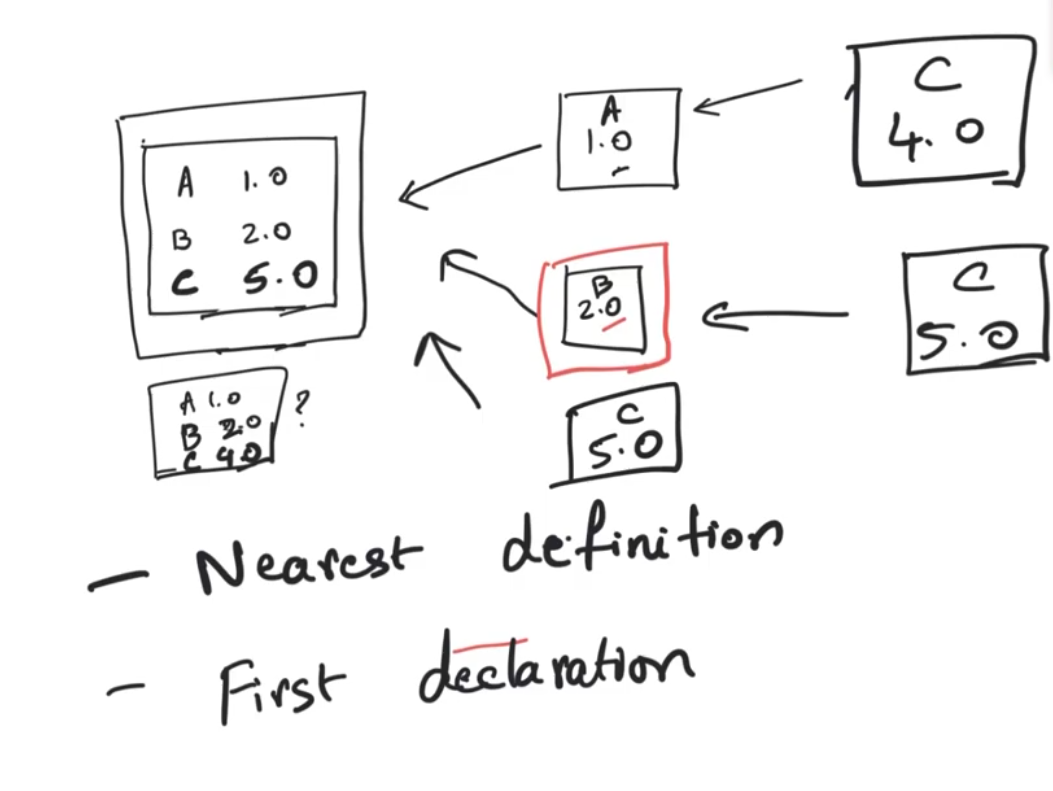 A 1.0
B 2.0
C 5.0
A 1.0
B 2.0
C 4.0
?
A
1.0
C
4.0
B
2.0
C
5.0
C
5.0
- Nearest definition
- First declaration